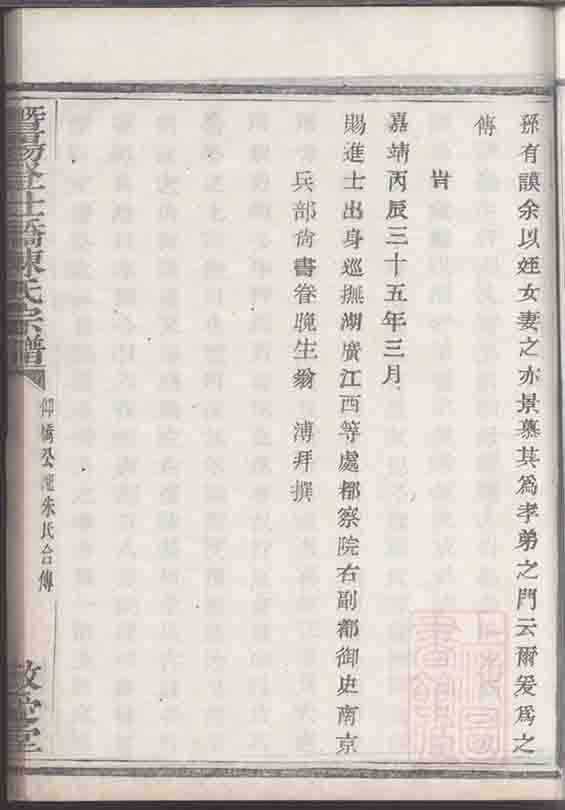 孫有謨余以姪女妻之亦景慕其為孝弟之門云爾爰為之
傳
旹
嘉靖丙辰三十五年三月
賜進士出身巡撫湖廣江西等處都察院右副都御史南京
兵部尙書眷晚生翁 溥拜撰
陳氏宗譜
仰橋公配朱氏合傳
上海圖
書館藏